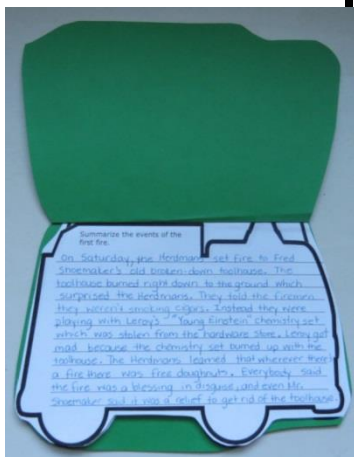 Summarize the events of the
first fire.
On Saturday, the Herdmans set fire to Fred
Shoemaker's old broken-down toolhouse. The
toolhouse burned right down to the ground which
surprised the Herdmans. They told the firemen
they weren't smoking cigars. Instead they were
playing with Leroy's "Young Einstein" chemistry set
which was stolen from the hardware store. Leroy got
mad because the chemistry set burned up with the
toolhouse. The Herdmans learned that wherever there's
a fire there was free doughnuts. Everybody said
the fire was a blessing in disguise, and even Mr.
Shoemaker said it was a relief to get rid of the toolhouse.